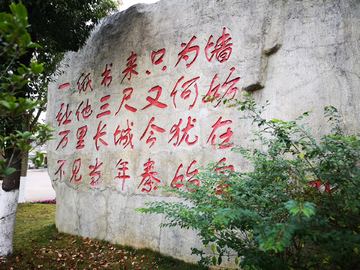 一纸书来只为墙
让他三尺又何妨
万里长城今犹在
不见当年秦始皇